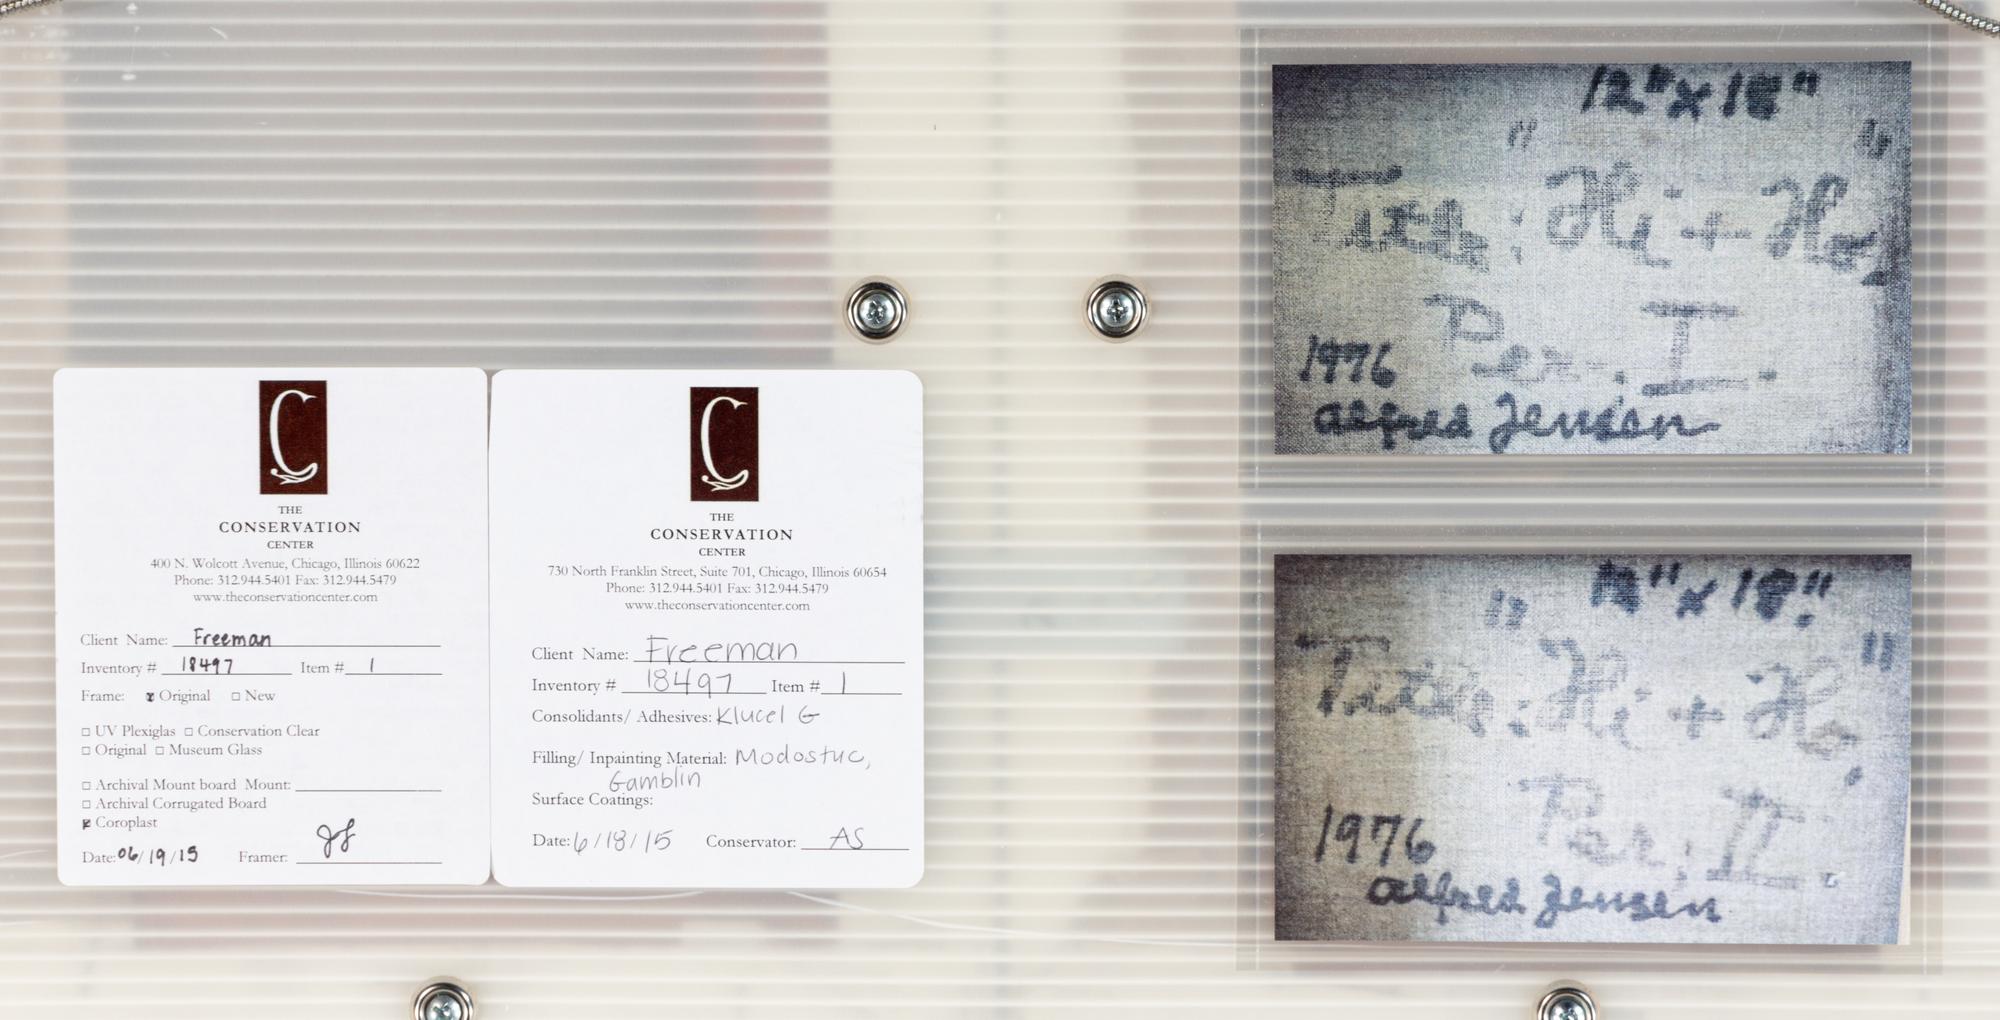 C
THE
CONSERVATION
CENTER
400 N. Wolcott Avenue, Chicago, Illinois 60622
Phone: 312.944.5401 Fax: 312.944.5479
www.theconservationcenter.com
Client Name: Freeman
Inventory # 18497 Item # 1
Frame: Original New
UV Plexiglas Conservation Clear
Original Museum Glass
Archival Mount board Mount:
Archival Corrugated Board
Coroplast
Date: 06/19/15 Framer:
C
THE
CONSERVATION
CENTER
730 North Franklin Street, Suite 701, Chicago, Illinois 60654
Phone: 312.944.5401 Fax: 312.944.5479
www.theconservationcenter.com
Client Name: Freeman
Inventory # 18497 Item # 1
Consolidants/ Adhesives: Klucel G
Filling/ Inpainting Material: Modostuc,
Gamblin
Surface Coatings:
Date: 6/18/15 Conservator: AS
12" x 18"
Title: "Hi + Ho,"
Per. I.
1976
Alfred Jensen
12" x 18"
Title: "Hi + Ho,"
Per. II.
1976
Alfred Jensen